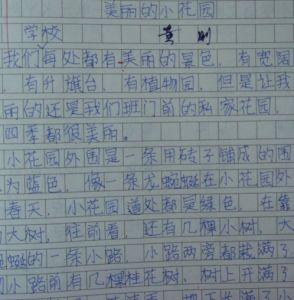 美丽的小花园
学校
黄刚
我们每处都有美丽的景色。有宽阔
，有升旗台，有植物园，但是让我
丽的还是我们班门前的私家花园，
四季都很美丽。
小花园外围是一条用砖子铺成的围
为蓝色，像一条龙蜿蜒在小花园外
春天，小花园道处都是绿色，在
大树。往前看，还有几棵小树。大
蜿蜒的一条小路，小路两旁都栽满了
小路前有几棵桂花树，树上开满了